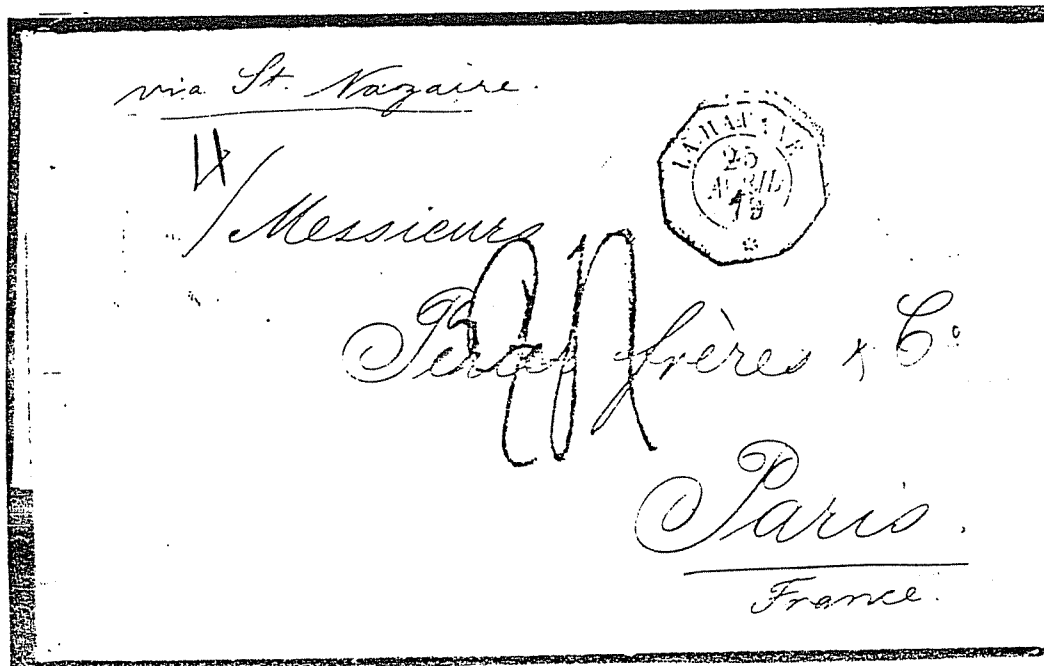 via St. Nazaire.
LA HAVANE
25
AVRIL
79
4/ Messieurs
frères & Cº
Paris.
France.